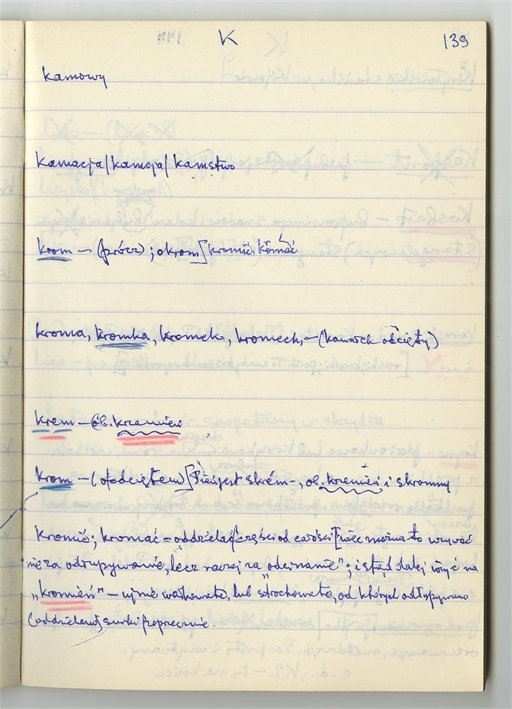 K 139
Kamowy
Kamacja/kamcja/kamstwo
Krom — (prócz); okrom [kromić, kromać
Kroma, kromka, kromek, kromech, — (kawałek obcięty)
Krem — ob. krzemień
Krom — (odcięte) Pień jest skrem-, ob. kremień i skromny
Kromić; kromać = oddzielać części od całości [więc można to uzywać
nie za odłupywanie, lecz raczej za "odcinanie"; i stąd dalej iść na
„kromień" — ujmo wałkowate, lub stochowate, od których odłupywano
(oddzielano) surki poprzecznie.